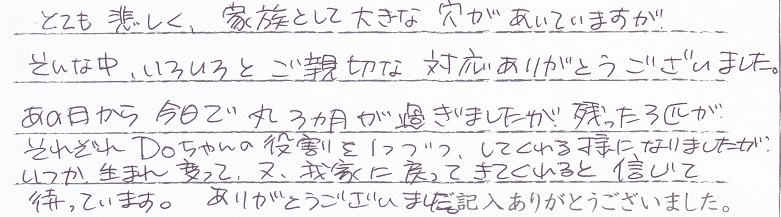 とても悲しく、家族として大きな穴があいていますが
そんな中、いろいろとご親切な対応ありがとうございました。
あの日から今日で丸3ヵ月が過ぎましたが、残った3匹が
それぞれDoちゃんの役割を1つづつ、してくれる様になりましたが、
いつか生まれ変って、又、我家に戻ってきてくれると信じて
待っています。ありがとうございました。
記入ありがとうございました。